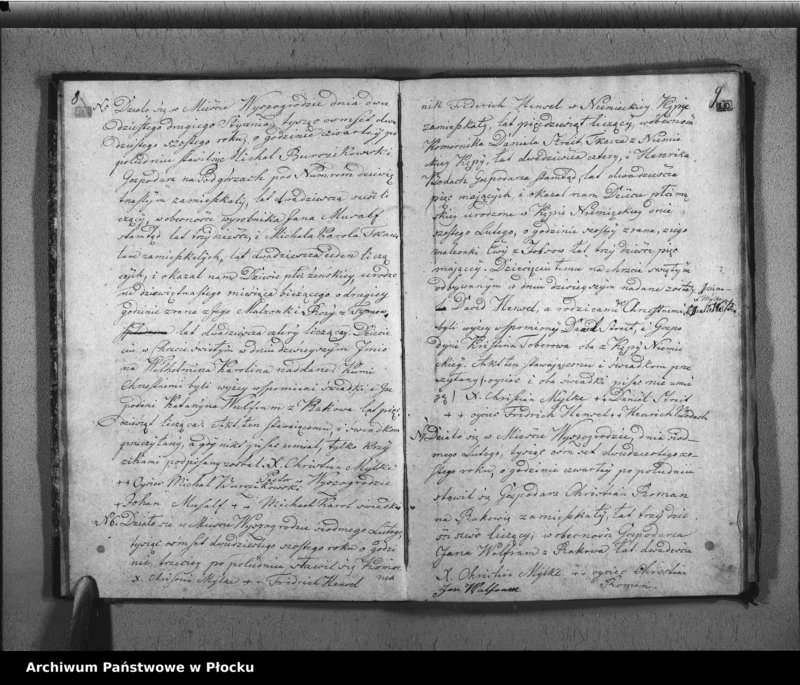 8.
No Działo się w Mieście Wyszogrodzie dnia dwu
dziestego drugiego Stycznia, tysiąc osmset dwu
dziestego szostego roku, o godzinie czwartey po
południu stawił się Michał Burczikowski
Gospodarz na Podgórzach pod Numrem dziewię
tnastym zamieszkały, lat dwadziescia sześć li
czący, w obecności wyrobnika Jana Musalf
lat trzydzieści, i Michała Karola
tam zamieszkałych, lat dwadziescia ieden liczą
cych, i okazał nam Dziecie płci żenskiey, urodzo
ne dziewiętnastego miesiąca bieżącego o drugiey
godzinie zrana z Jego Małzonki Rozy z
lat dwadziescia cztery liczącey. Dziecię
ciu w Chrzcie świętym w dniu dzisieyszym Imio
na Wilhelmina Karolina naddane. Kumi
Chrzestnemi byli wyzey wspomieni świadki i Go
spodini Katarzyna Wulfram z Rakowa lat pięć
dziesiąt licząca. Akt ten stawiącemu, i swiadkom
przeczytany, a gdy nikt pisać umiał, tylko krzy
zikami podpisany został. X. Christian Mylke
++ Oyciec Michał Burczikowski Pastor Wyszogrodzie
+ Johan Musalf + + Michael Karol swiadki
No 6. Działo się w Miescie Wyszogrodzie siodmego Lutego
tysiąc osmset dwudziestego szostego roku o godzi
nie trzeciey po południu stawił się Komor
X. Christian Mylke + + Fridrich Hensel nia
9.
nik Friderich Hensel w Niemieckiey Kępie
zamieszkały, lat pięcdziesiąt liczący, w obecności
Komornika Daniela Streit Tkacza z Niemie
ckiey Kępy, lat dwadziescia cztery, i Henrika
Wodach Gospodarza lat dwadziescia
pięc maiących, i okazał nam Dziecie płci mę
skiey urodzone w Kępie Niemieckiey dnia
szostego Lutego, o godzinie szostey zrana, z iego
małzonki Ewy z Tobrow lat trzydziesci pięc
maiącey Dziecięciu temu na chrzcie swiętym
odbywanym w dniu dzisieyszym nadane zostało Imię
David Hensel, a rodzicami Chrzestnemi
byli wyzey wspomiony Daniel Streit, i Gospo
dyni Kristina Toberowa oba z Kępy Niemie
ckiey. Akt ten stawaiącemu i swiadkom prze
czytany, oyciec i oba swiadki pisac nie umie
ią / X. Christian Mylke + + Daniel Streit
+ + oyciec Fridrich Hensel + + Henrich Wodach
No Działo się w Mieście Wyszogrodzie, dnia siod
mego Lutego, tysiąc osm set dwudziestego szo
stego roku, o godzinie czwartey po południu
stawił się Gospodarz Christian Roman
na Rakowie zamieszkały, lat trzydzie
ści liczący, w obecności Gospodarza
Jana Wolfram z Rakowa lat dwadziescia
X. Christian Mylke ++ oyciec Christian
Jan Wolfram Roman.
Archiwum Państwowe w Płocku